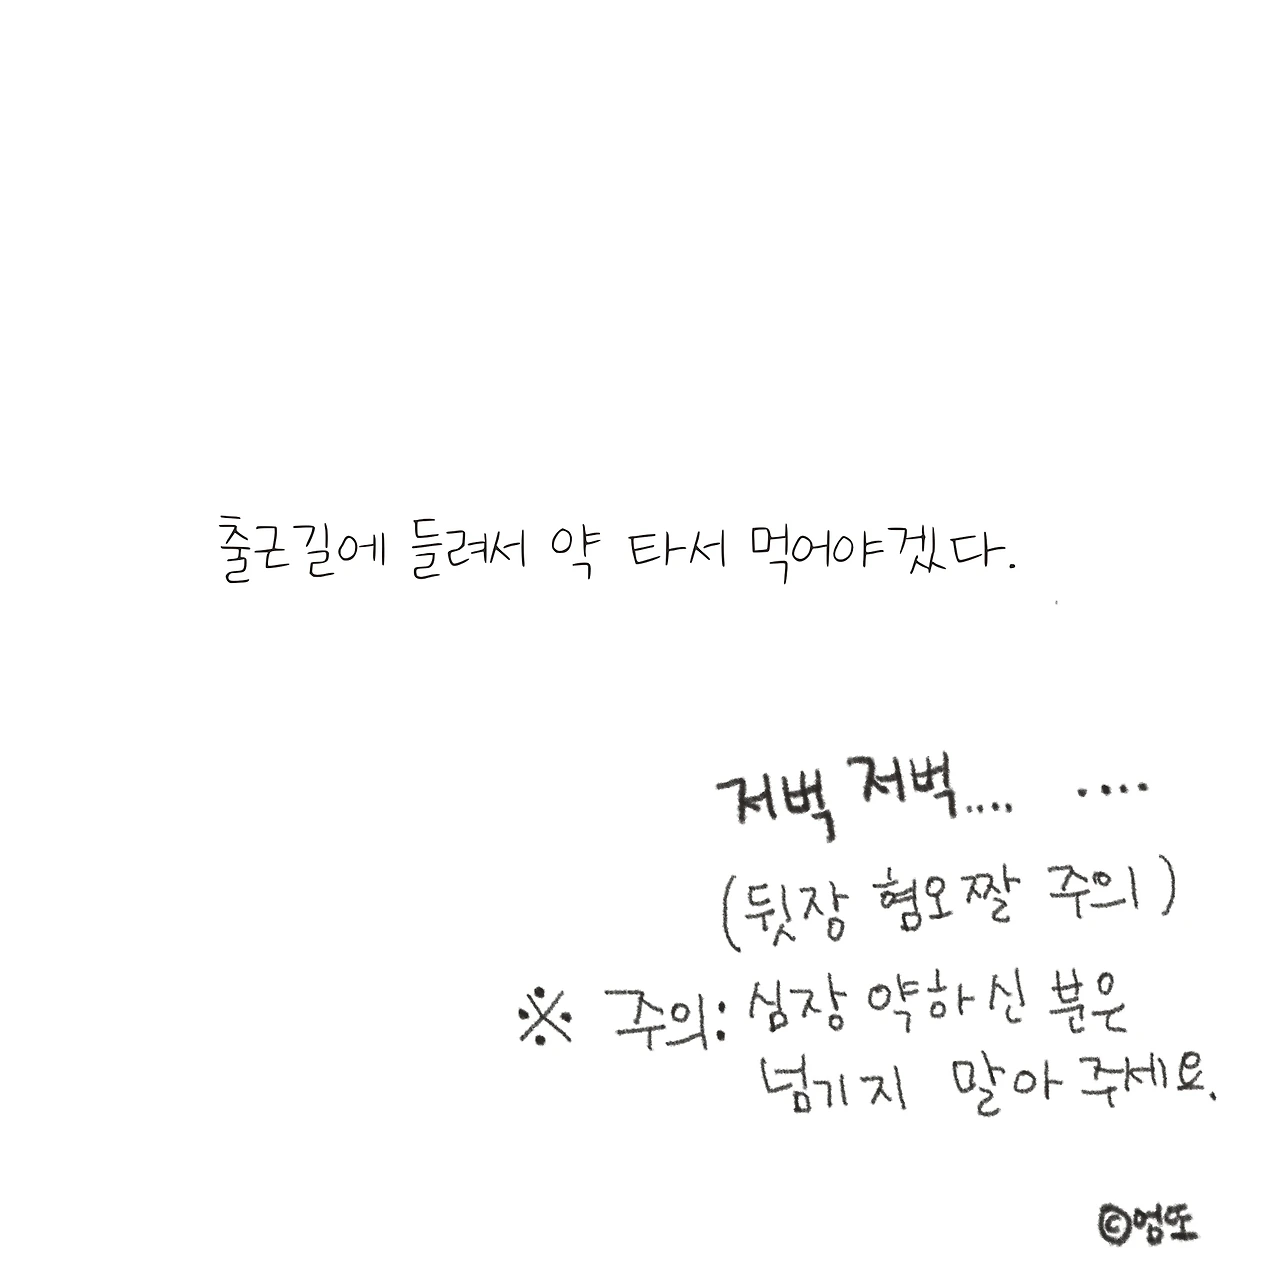 출근길에 들려서 약 타서 먹어야겠다.
저벅 저벅.... ....
(뒷장 혐오짤 주의)
※ 주의: 심장 약하신 분은
넘기지 말아 주세요.
©엄또